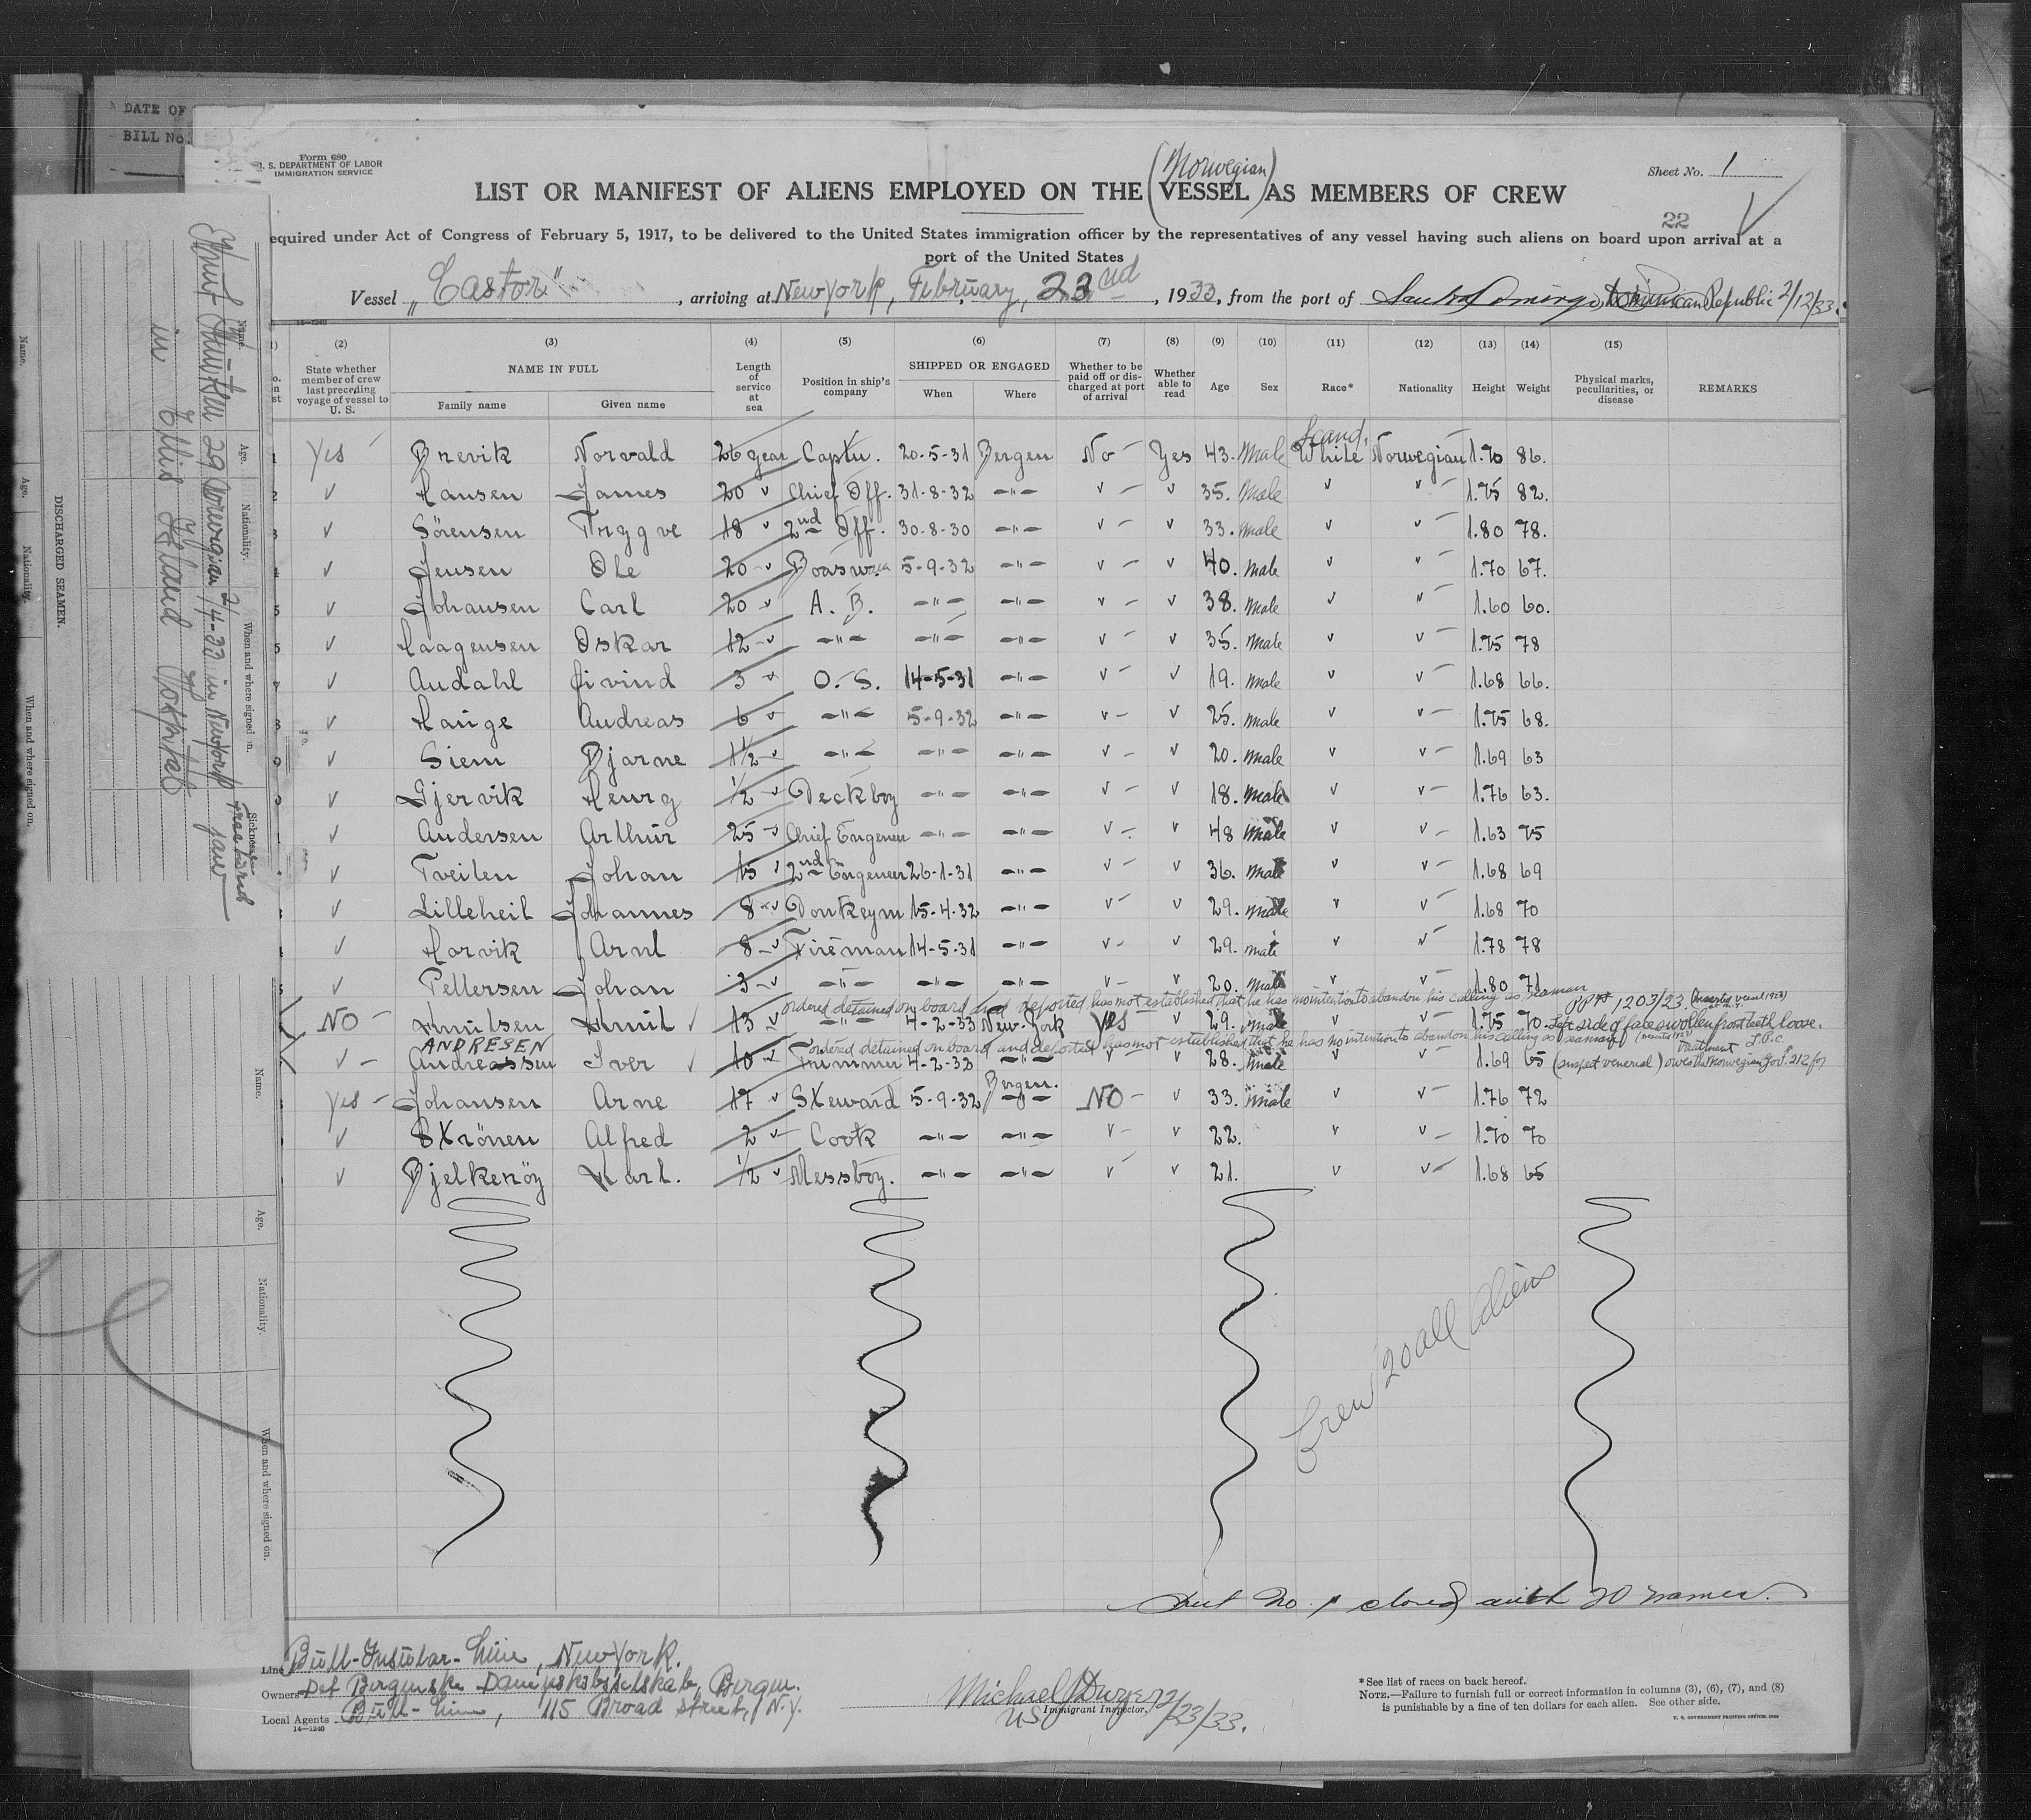 DATE OF
BILL No.
Form 680
U. S. DEPARTMENT OF LABOR
IMMIGRATION SERVICE
(Norwegian)
Sheet No. 1
LIST OR MANIFEST OF ALIENS EMPLOYED ON THE (VESSEL) AS MEMBERS OF CREW
22
equired under Act of Congress of February 5, 1917, to be delivered to the United States immigration officer by the representatives of any vessel having such aliens on board upon arrival at a
port of the United States
Vessel „Castor", arriving at New York, February, 23nd, 1933, from the port of Santo Domingo, Dominican Republic 2/12/33.
14—1240
(2) (3) (4) (5) (6) (7) (8) (9) (10) (11) (12) (13) (14) (15)
State whether member of crew last preceding voyage of vessel to U. S. NAME IN FULL Family name Given name Length of service at sea Position in ship's company SHIPPED OR ENGAGED When Where Whether to be paid off or discharged at port of arrival Whether able to read Age Sex Race* Nationality Height Weight Physical marks, peculiarities, or disease REMARKS
Scand.
1 Yes Brevik Norvald 26 year Captn. 20-5-31 Bergen No Yes 43. Male White Norwegian 1.70 86.
2 v Hansen James 20 v Chief Off. 31-8-32 -"- v v 35. Male v v 1.75 82.
3 v Sörensen Tryggve 18 v 2nd Off. 30-8-30 -"- v v 33. Male v v 1.80 78.
4 v Jensen Ole 20 v Boaswn 5-9-32 -"- v v 40. Male v " 1.70 67.
5 v Johansen Carl 20 v A. B. -"- -"- v v 38. Male v " 1.60 60.
v Haagensen Oskar 12 v -"- -"- -"- v v 35. Male v v 1.75 78
7 v Andahl Öivind 3 v O. S. 14-5-31 -"- v v 19. Male v v 1.68 66.
8 v Hauge Andreas 6 v -"- 5-9-32 -"- v v 25. Male v v 1.75 68.
9 v Siem Bjarne 1½ v -"- -"- -"- v v 20. Male v v 1.69 63
v Gjervik Henry ½ v Deckboy -"- -"- v v 18. Male v v 1.76 63.
v Andersen Arthur 25 v Chief Engeneer -"- -"- v v 48 Male v v 1.63 75
v Tveiten Johan 15 v 2nd Engeneer 26-1-31 -"- v v 36. Male v v 1.68 69
v Lilleheil Johannes 8 v Donkeym 15-4-32 -"- v v 29. Male v v 1.68 70
v Horvik Arnt 8 v Fireman 14-5-31 -"- v v 29. Male v v 1.78 78
v Pettersen Johan 3 v -"- -"- -"- v v 20. Male v v 1.80 71
ordered detained on board and deported has not established that he has no intention to abandon his calling as seaman
1203/23
NO Knutsen Knut 13 v -"- 4-2-33 New-York Yes v 29. Male v v 1.75 70 Left side of face swollen front teeth loose.
ANDRESEN
ordered detained on board and deported has not established that he has no intention to abandon his calling as seaman
treatment
v Andreassen Iver 10 v Trimmer 4-2-33 -"- v v 28. Male v v 1.69 65 (suspect venereal) owes the Norwegian Gov. 212
Bergen.
Yes Johansen Arne 17 v Steward 5-9-32 -"- NO v 33. Male v v 1.76 72
v Skrönen Alfred 2 v Cook -"- -"- v v 22. v v 1.70 70
v Bjelkenöy Karl. ½ v Messboy. -"- -"- v v 21. v v 1.68 65
Crew 20 all Aliens
Sheet No 1 closed with 20 names.
Line Bull-Insular-Line, New York.
Owners Det Bergenske Dampskibsselskab, Bergen.
Local Agents Bull-Line, 115 Broad Street, N.Y.
14—1240
Michael J Dwyer 2/23/33.
US Immigrant Inspector.
*See list of races on back hereof.
NOTE.—Failure to furnish full or correct information in columns (3), (6), (7), and (8)
is punishable by a fine of ten dollars for each alien. See other side.
U. S. GOVERNMENT PRINTING OFFICE
DISCHARGED SEAMEN.
Name. Age. Nationality. When and where signed on.
Name. Age. Nationality. When and where signed on.
Knut Knutsen 29 Norwegian 2/4-33 in New York
fractured jaw
in Ellis Island Hospital
Name. Age. Nationality. When and where signed on.